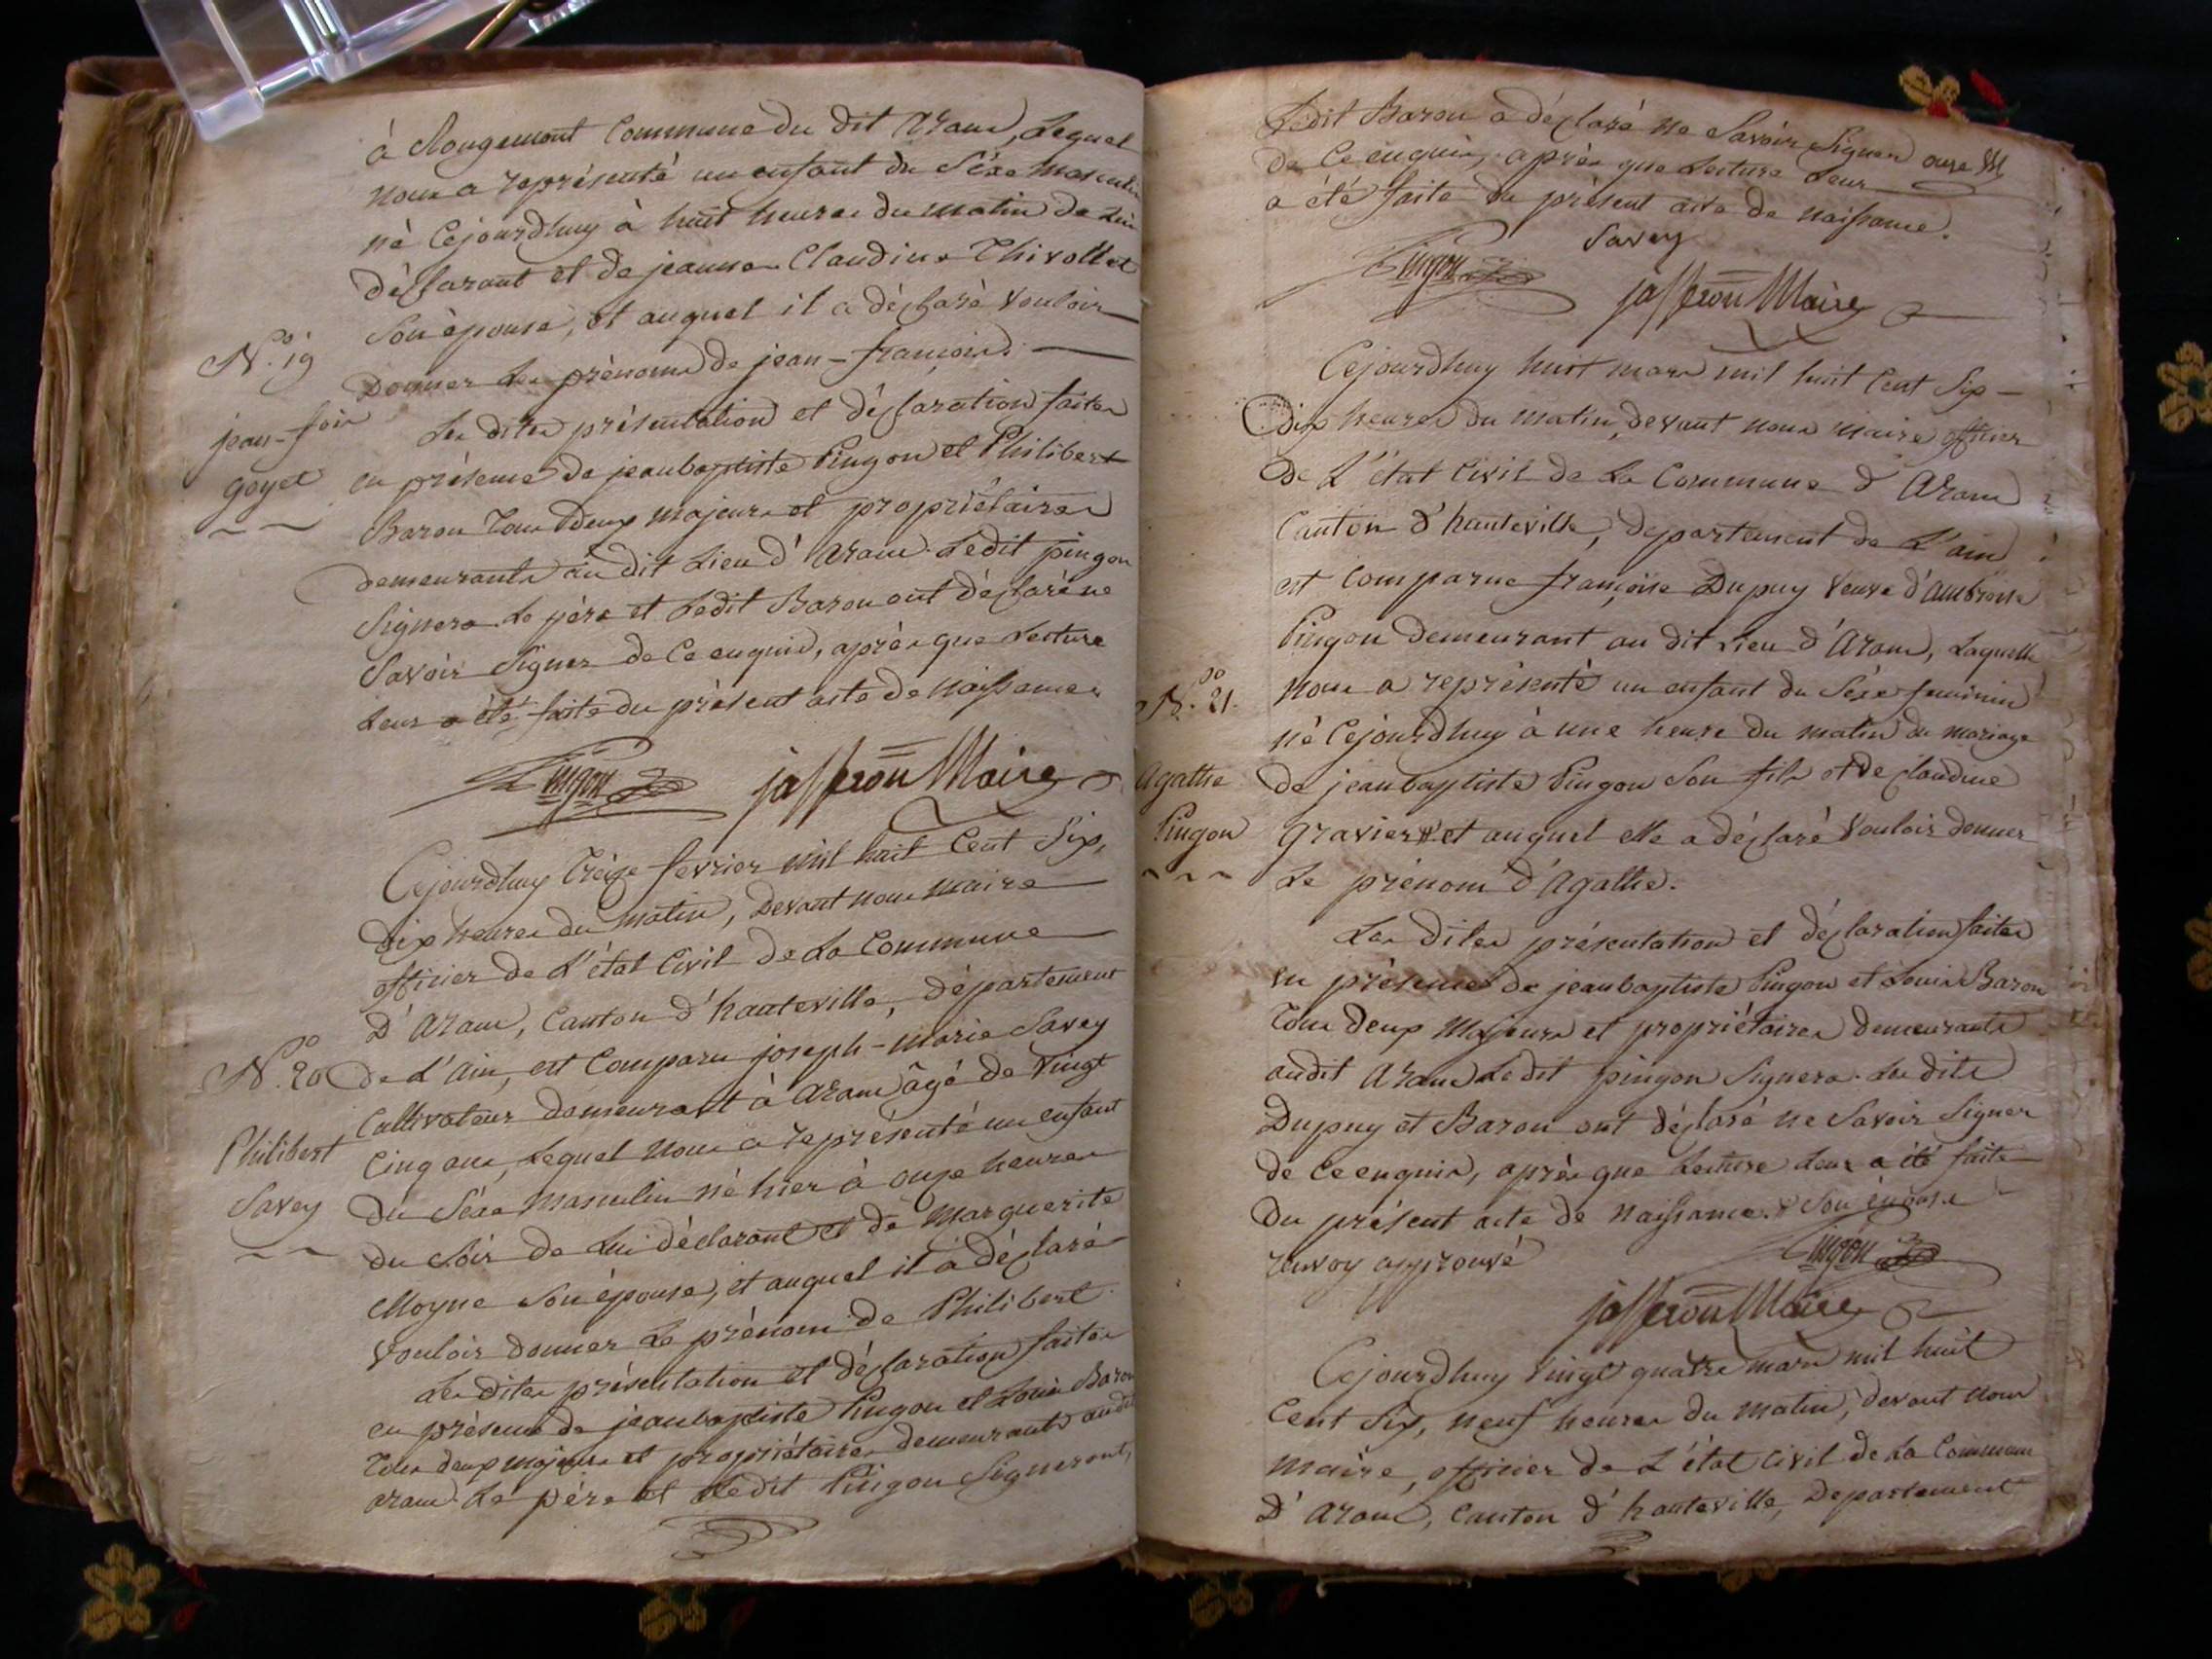 à Rougemont Commune du dit Aranc, Lequel
nous a représenté un enfant du Séxe masculin
né Cejourdhuy à huit heures du matin de Lui
déclarant et de jeanne-Claudine Thivollet
Son épouse, et auquel il a déclaré vouloir
N.o 19
Donner Les prénoms de jean-françois.
jean-fois
goyet
Les dites présentation et déclaration faites
en présence de jeanbaptiste Pingon et Philibert
Baron Tous deux majeurs et propriétaires
demeurants au dit Lieu d'Aranc. Ledit pingon
Signera. Le père et Ledit Baron ont déclaré ne
Savoir Signer de Ce enquis, après que Lecture
Leur a été faite du présent acte de Naissance.
Pingon jasseron Maire
Cejourdhuy Treize fevrier mil huit Cent Six,
dix heures du matin, Devant nous maire
officier de L'état Civil de La Commune
D'Aranc, Canton d'hauteville, département
N.o 20
de L'ain, est Comparu joseph-marie Savey
Cultivateur demeurant à Aranc âgé de vingt
Philibert
Savey
Cinq ans, Lequel nous a représenté un enfant
du Séxe masculin né hier à onze heures
du Soir de Lui déclarant et de Marguerite
Moyne Son épouse, et auquel il a déclaré
vouloir donner Le prénom de Philibert.
Les dites présentation et déclaration faites
en présence de jeanbaptiste Pingon et Louis Baron
Tous deux majeurs et propriétaires demeurants audit
aranc. Le père et Ledit Pingon Signeront,
Ledit Baron a déclaré ne Savoir Signer
de Ce enquis, après que Lecture Leur
a été faite du présent acte de naissance.
Savey
Pingon
jasseron Maire
Cejourdhuy huit mars mil huit Cent Six
Dix heures du matin, devant nous maire officier
de L'état Civil de La Commune d'Aranc
Canton d'hauteville, département de L'ain
est Comparue françoise Dupuy veuve d'ambroise
Pingon demeurant au dit Lieu d'Aranc, Laquelle
N.o 21.
nous a représenté un enfant du Séxe feminin
né Cejourdhuy à une heure du matin du mariage
Agathe
Pingon
de jeanbaptiste Pingon Son fils et de claudine
gravier et auquel elle a déclaré vouloir donner
Le prénom d'Agathe.
Les dites présentation et déclaration faites
en présence de jeanbaptiste Pingon et Louis Baron
Tous deux Majeurs et propriétaires demeurants
audit Aranc Ledit pingon Signera. Les dits
Dupuy et Baron ont déclaré ne Savoir Signer
de Ce enquis, après que Lecture Leur a été faite
du présent acte de Naissance. Son épouse
renvoy approuvé Pingon
jasseron Maire
Cejourdhuy vingt quatre mars mil huit
Cent Six, neuf heures du matin, devant nous
maire, officier de L'état Civil de La Commune
D'Aranc, Canton d'hauteville, Departement